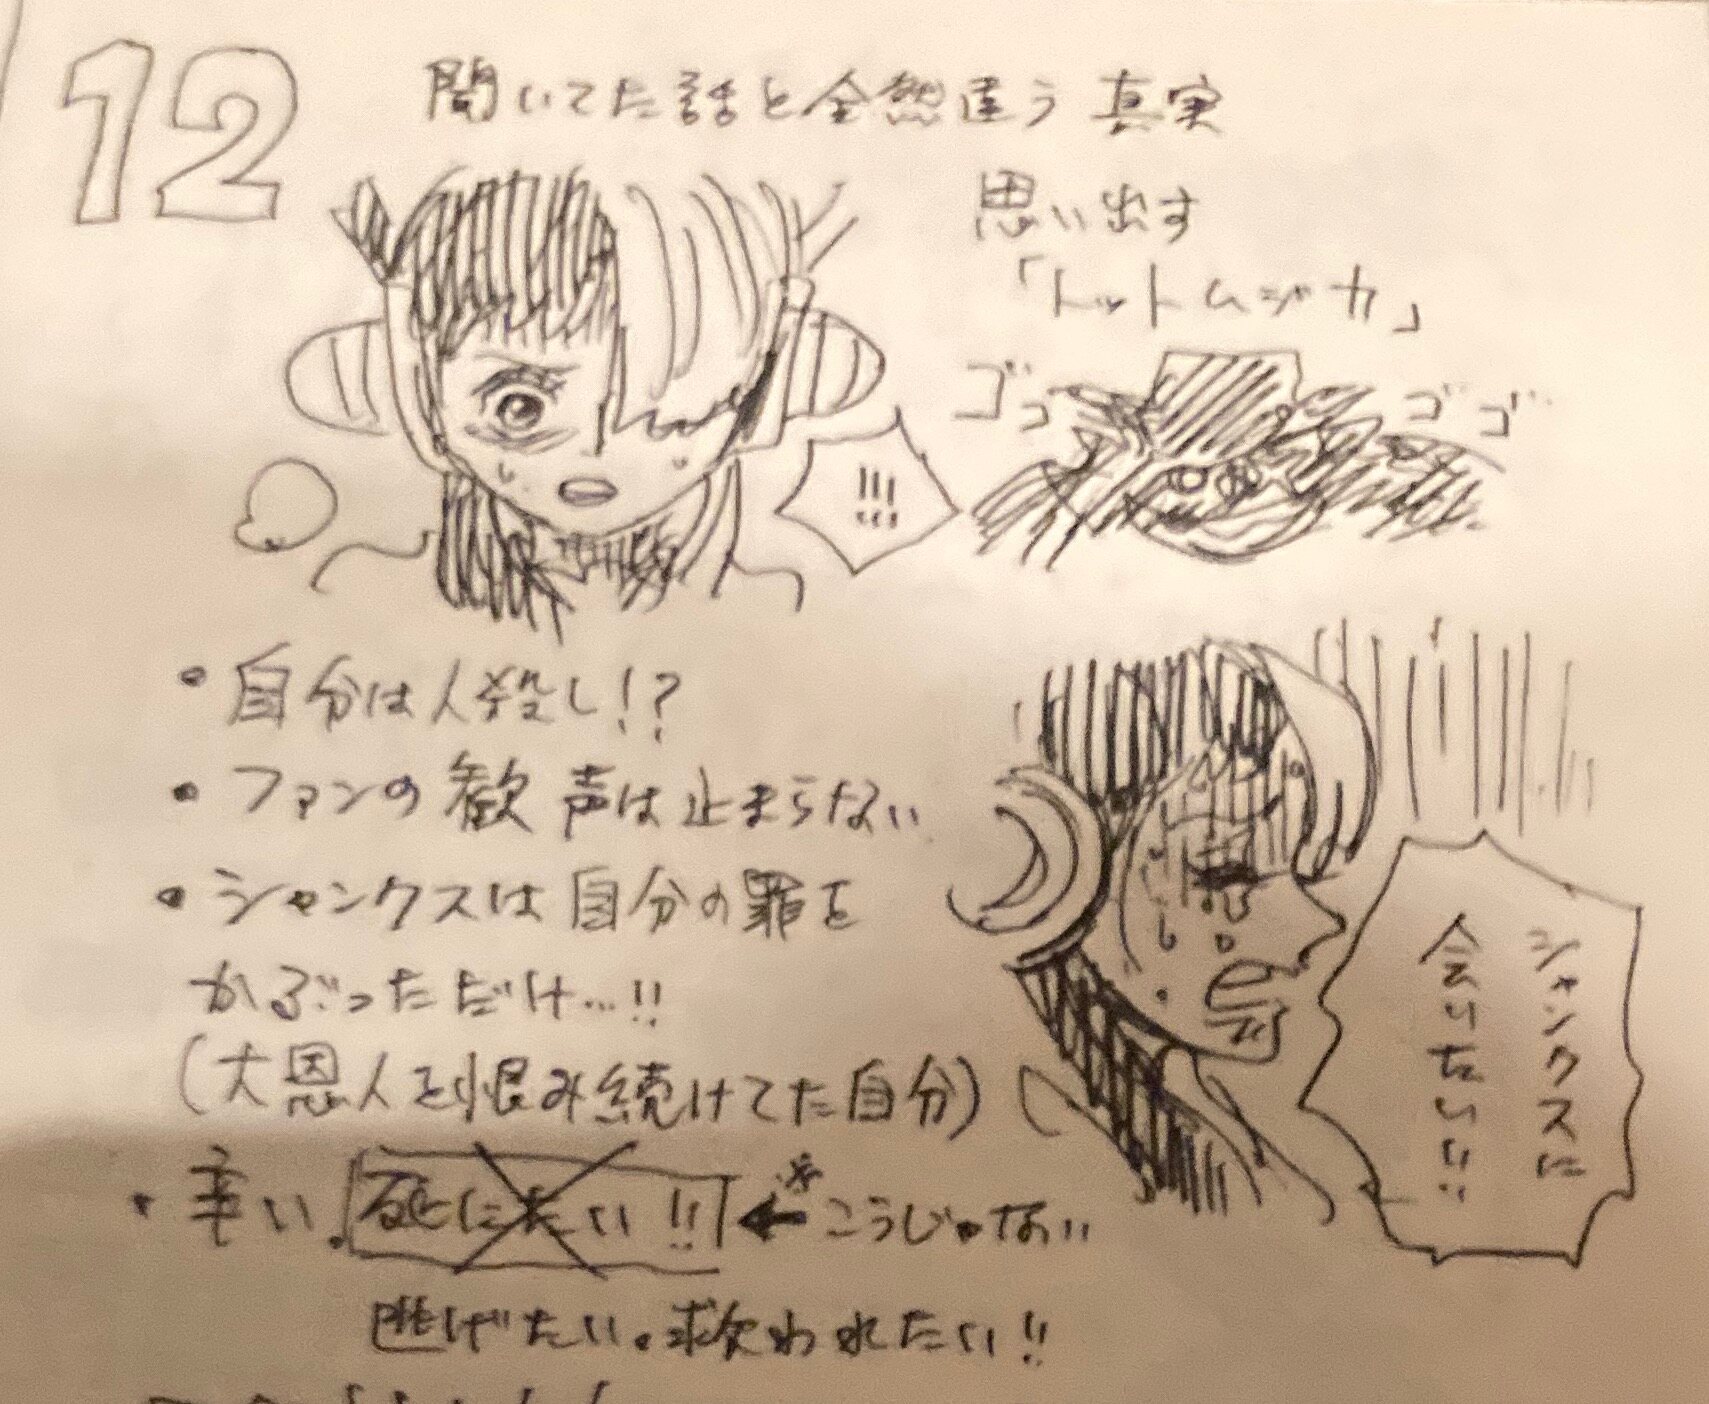 12
聞いてた話と全然違う真実
思い出す
「トットムジカ」
ゴゴ
ゴゴ
!!!
・自分は人殺し!?
・ファンの歓声は止まらない
・シャンクスは自分の罪を
かぶっただけ…!!
(大恩人を恨み続けてた自分)
シャンクスに
会いたい!!
・辛い。死にたい!! ← ※こうじゃない
逃げたい。救われたい!!